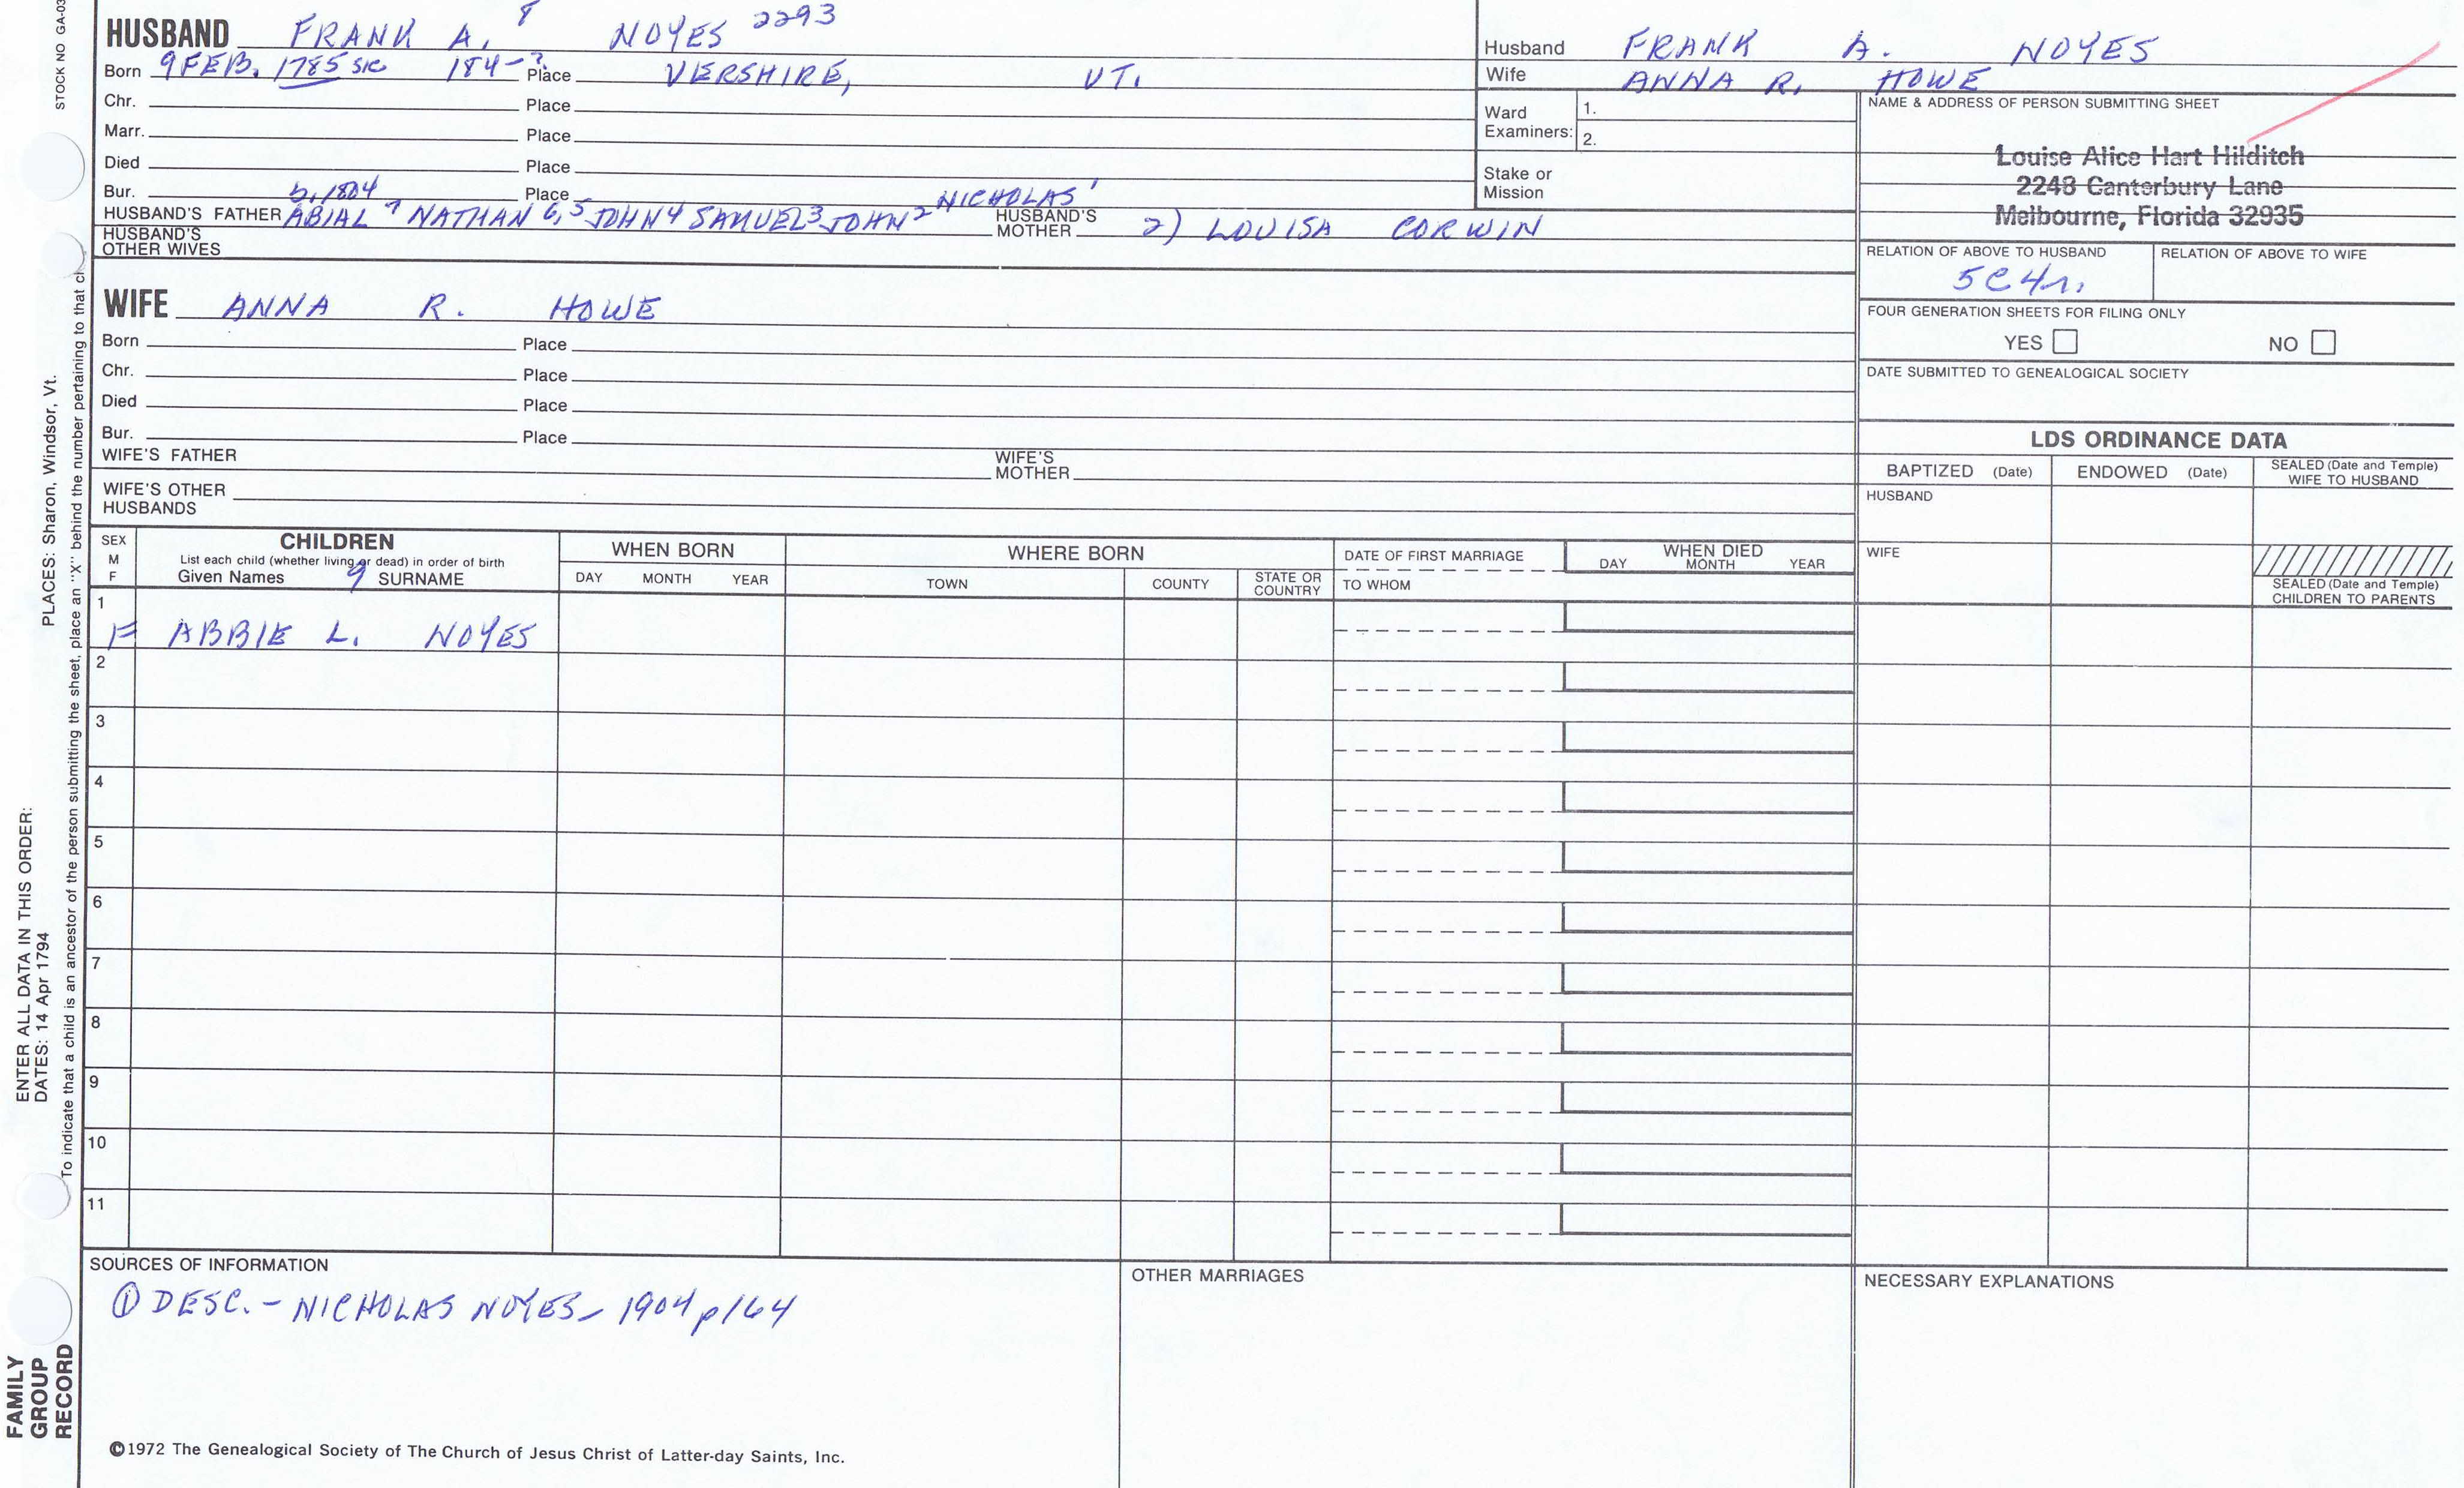 STOCK NO GA-03
HUSBAND FRANK A. 8 NOYES 2293
Born 9 FEB. 1785 sic 184-? Place VERSHIRE, VT.
Chr. Place
Marr. Place
Died Place
Bur. Place
HUSBAND'S FATHER b. 1804 ABIAL 7 NATHAN 6,5 JOHN 4 SAMUEL 3 JOHN 2 NICHOLAS 1 HUSBAND'S MOTHER 2) LOUISA CORWIN
HUSBAND'S OTHER WIVES
WIFE ANNA R. HOWE
Born Place
Chr. Place
Died Place
Bur. Place
WIFE'S FATHER WIFE'S MOTHER
WIFE'S OTHER HUSBANDS
Husband FRANK A. NOYES
Wife ANNA R. HOWE
Ward Examiners: 1.
2.
Stake or Mission
NAME & ADDRESS OF PERSON SUBMITTING SHEET
Louise Alice Hart Hilditch
2248 Canterbury Lane
Melbourne, Florida 32935
RELATION OF ABOVE TO HUSBAND RELATION OF ABOVE TO WIFE
5C4r.
FOUR GENERATION SHEETS FOR FILING ONLY
YES NO
DATE SUBMITTED TO GENEALOGICAL SOCIETY
LDS ORDINANCE DATA
BAPTIZED (Date) ENDOWED (Date) SEALED (Date and Temple) WIFE TO HUSBAND
HUSBAND
WIFE
SEALED (Date and Temple) CHILDREN TO PARENTS
SEX M F
CHILDREN
List each child (whether living or dead) in order of birth
Given Names 9 SURNAME
WHEN BORN
DAY MONTH YEAR
WHERE BORN
TOWN COUNTY STATE OR COUNTRY
DATE OF FIRST MARRIAGE
TO WHOM
WHEN DIED
DAY MONTH YEAR
1
F ABBIE L. NOYES
2
3
4
5
6
7
8
9
10
11
SOURCES OF INFORMATION
① DESC. - NICHOLAS NOYES - 1904 p164
OTHER MARRIAGES
NECESSARY EXPLANATIONS
©1972 The Genealogical Society of The Church of Jesus Christ of Latter-day Saints, Inc.
ENTER ALL DATA IN THIS ORDER:
DATES: 14 Apr 1794
PLACES: Sharon, Windsor, Vt.
To indicate that a child is an ancestor of the person submitting the sheet, place an "X" behind the number pertaining to that
FAMILY
GROUP
RECORD